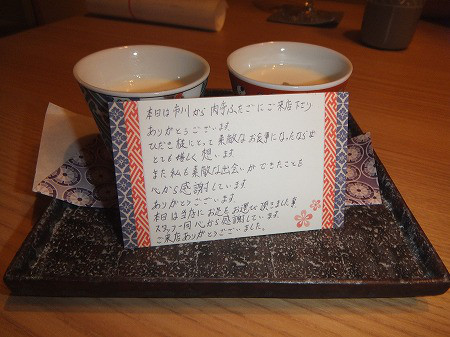 本日は市川から内子ふたごにご来店下さり
ありがとうございます
ひだき様にとって素敵なお食事になったならば
とても嬉しく想います
また私も素敵な出会いができたことも
心から感謝しています
ありがとうございます。
本日は当店にお足をお運び頂きました事
スタッフ一同心から感謝しています。
ご来店ありがとうございました。